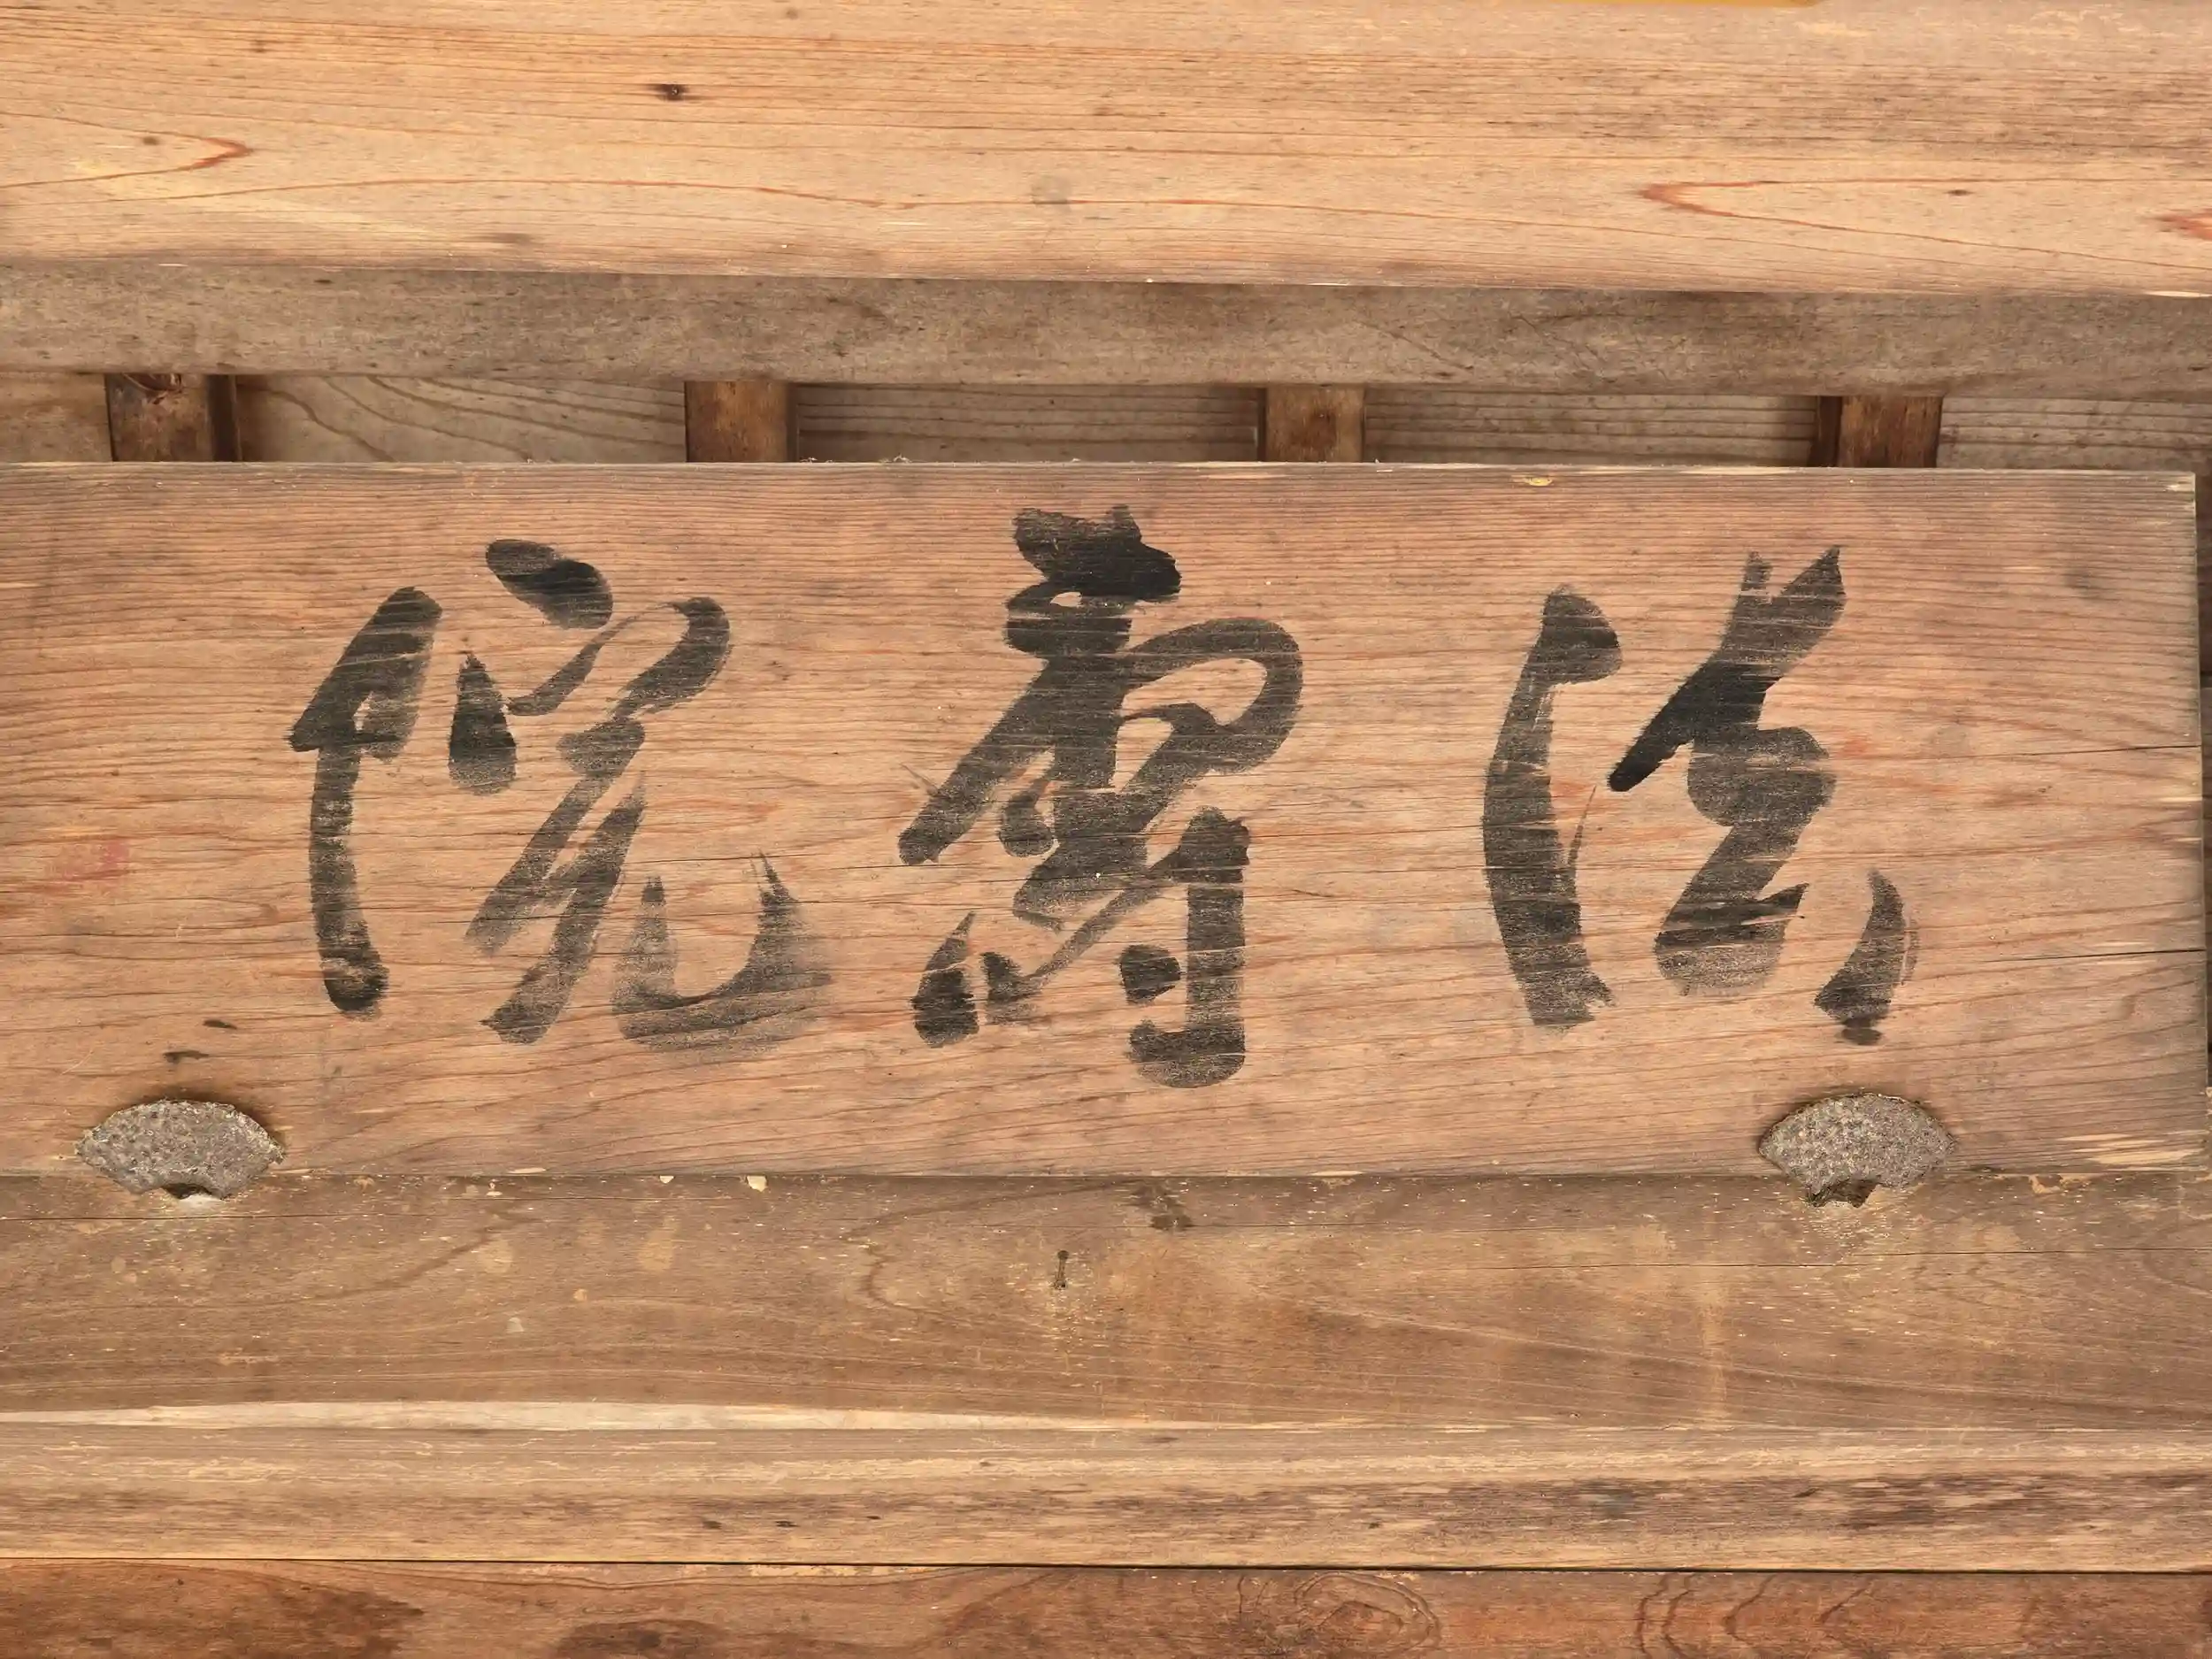 法壽院